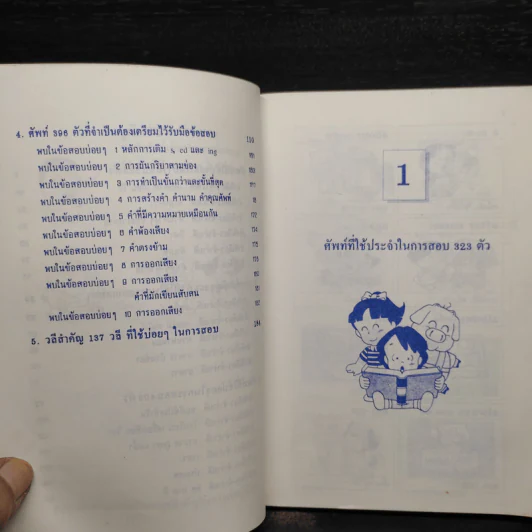 4. ศัพท์ 396 ตัวที่จำเป็นต้องเตรียมไว้รับมือข้อสอบ
พบในข้อสอบบ่อยๆ 1 หลักการเติม s, ed และ ing
พบในข้อสอบบ่อยๆ 2 การผันกริยาสามช่อง
พบในข้อสอบบ่อยๆ 3 การทำเป็นขั้นกว่าและขั้นที่สุด
พบในข้อสอบบ่อยๆ 4 การสร้างคำ คำนาม คำคุณศัพท์
พบในข้อสอบบ่อยๆ 5 คำที่มีความหมายเหมือนกัน
พบในข้อสอบบ่อยๆ 6 คำพ้องเสียง
พบในข้อสอบบ่อยๆ 7 คำตรงข้าม
พบในข้อสอบบ่อยๆ 8 การออกเสียง
พบในข้อสอบบ่อยๆ 9 การออกเสียง
คำที่มักเขียนสับสน
พบในข้อสอบบ่อยๆ 10 การออกเสียง
5. วลีสำคัญ 137 วลี ที่ใช้บ่อยๆ ในการสอบ
1
ศัพท์ที่ใช้ประจำในการสอบ 323 ตัว